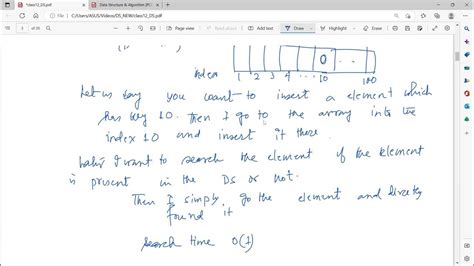 *class12_DS.pdf
Data Structure & Algorithm (PC
File | C:/Users/ASUS/Videos/DS_NEW/class12_DS.pdf
of 26
0 - -
index 1 2 3 4 ... 10 100
Let us say you want to insert a element which
has key 10. Then I go to the array into the
index 10 and insert it there.
I want to search the element if the element
is present in the DS or not.
Then I simply go the element and directly
found it
search time O(1)